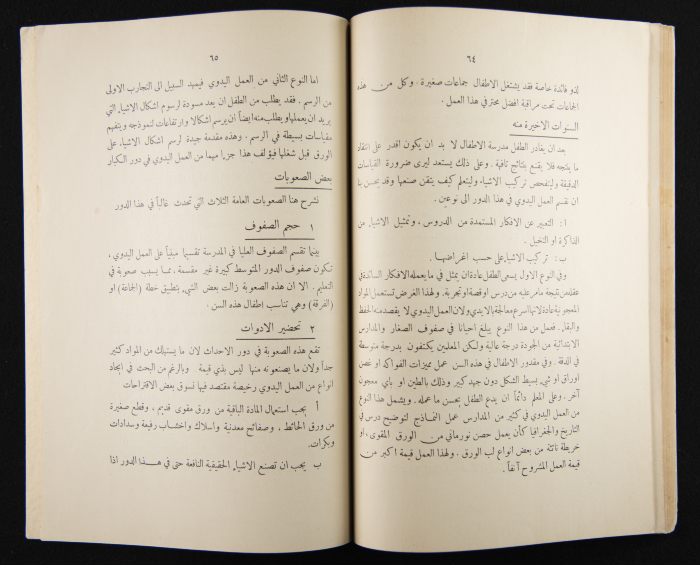 ٦٤
لذو فائدة خاصة فقد يشتغل الاطفال جماعات صغيرة . وكل من هذه
الجماعات تحت مراقبة افضل محترفي هذا العمل .
السنوات الاخيرة منه
بعد ان يغادر الطفل مدرسة الاطفال لا بد ان يكون اقدر على انتقاد
ما ينتجه فلا يقنع بنتائج تافهة . وعلى ذلك يستعد ليرى ضرورة القياسات
الدقيقة وليفحص تركيب الاشياء وليتعلم كيف يتقن صنعها وقد يحسن بنا
ان نقسم العمل اليدوي في هذا الدور الى نوعين .
ا : التعبير عن الافكار المستمدة من الدروس ، وتمثيل الاشياء من
الذاكرة او التخيل .
ب : تركيب الاشياء على حسب اغراضها .
وفي النوع الاول يسعى الطفل عادة ان يمثل في ما يعمله الافكار السائدة في
عقله من نتيجة ما مر عليه من درس او قصة او تجربة . ولهذا الغرض تستعمل المواد
المعجونية عادة لانها اسرع معالجة بالايدي ولان العمل اليدوي لا يقصد منه الحفظ
والبقاء . فعمل من هذا النوع يبلغ احيانا في صفوف الصغار والمدارس
الابتدائية من الجودة درجة عالية ولكن المعلمين يكتفون بدرجة متوسطة
في الدقة . وفي مقدور الاطفال في هذه السن عمل مميزات الفواكه او غصن
اوراق او شيء بسيط الشكل دون جهد كبير وذلك بالطين او باي معجون
آخر . وعلى المعلم دائماً ان يدع الطفل يحسن ما عمله . ويشمل هذا النوع
من العمل اليدوي في كثير من المدارس عمل النماذج لتوضيح درس في
التاريخ والجغرافيا كأن يعمل حصن نورماني من الورق المقوى ، او
خريطة ناتئة من بعض انواع لب الورق . ولهذا العمل قيمة اكبر من
قيمة العمل المشروح آنفاً .
٦٥
اما النوع الثاني من العمل اليدوي فيمهد السبيل الى التجارب الاولى
من الرسم . فقد يطلب من الطفل ان يعد مسودة لرسوم اشكال الاشياء التي
يريد ان يعملها ويطلب منه ايضاً ان يرسم اشكالا وارتفاعات لنموذجه ويتفهم
مقياسات بسيطة في الرسم . وهذه مقدمة جيدة لرسم اشكال الاشياء على
الورق قبل شغلها فيؤلف هذا جزءا مهما من العمل اليدوي في دور الكبار
بعض الصعوبات
نشرح هنا الصعوبات العامة الثلاث التي تحدث غالباً في هذا الدور
١ حجم الصفوف
بينما تقسم الصفوف العليا في المدرسة تقسيما مبنياً على العمل اليدوي ،
تتكون صفوف الدور المتوسط كبيرة غير مقسمة ، مما يسبب صعوبة في
التعليم . الا ان هذه الصعوبة زالت بعض الشيء بتطبيق خطة (الجماعة) او
(الفرقة) وهي تناسب اطفال هذه السن .
٢ تحضير الادوات
تقع هذه الصعوبة في دور الاحداث لان ما يستهلك من المواد كثير
جداً ولان ما يصنعونه منها ليس بذي قيمة وبالرغم من البحث في ايجاد
انواع من العمل اليدوي رخيصة مقتصد فيها نسوق بعض الاقتراحات
أ يجب استعمال المادة الباقية من ورق مقوى قديم ، وقطع صغيرة
من ورق الحائط ، وصفائح معدنية واسلاك واخشاب رفيعة وسدادات
وبكرات .
ب يجب ان تصنع الاشياء الحقيقية النافعة حتى في هذا الدور اذا